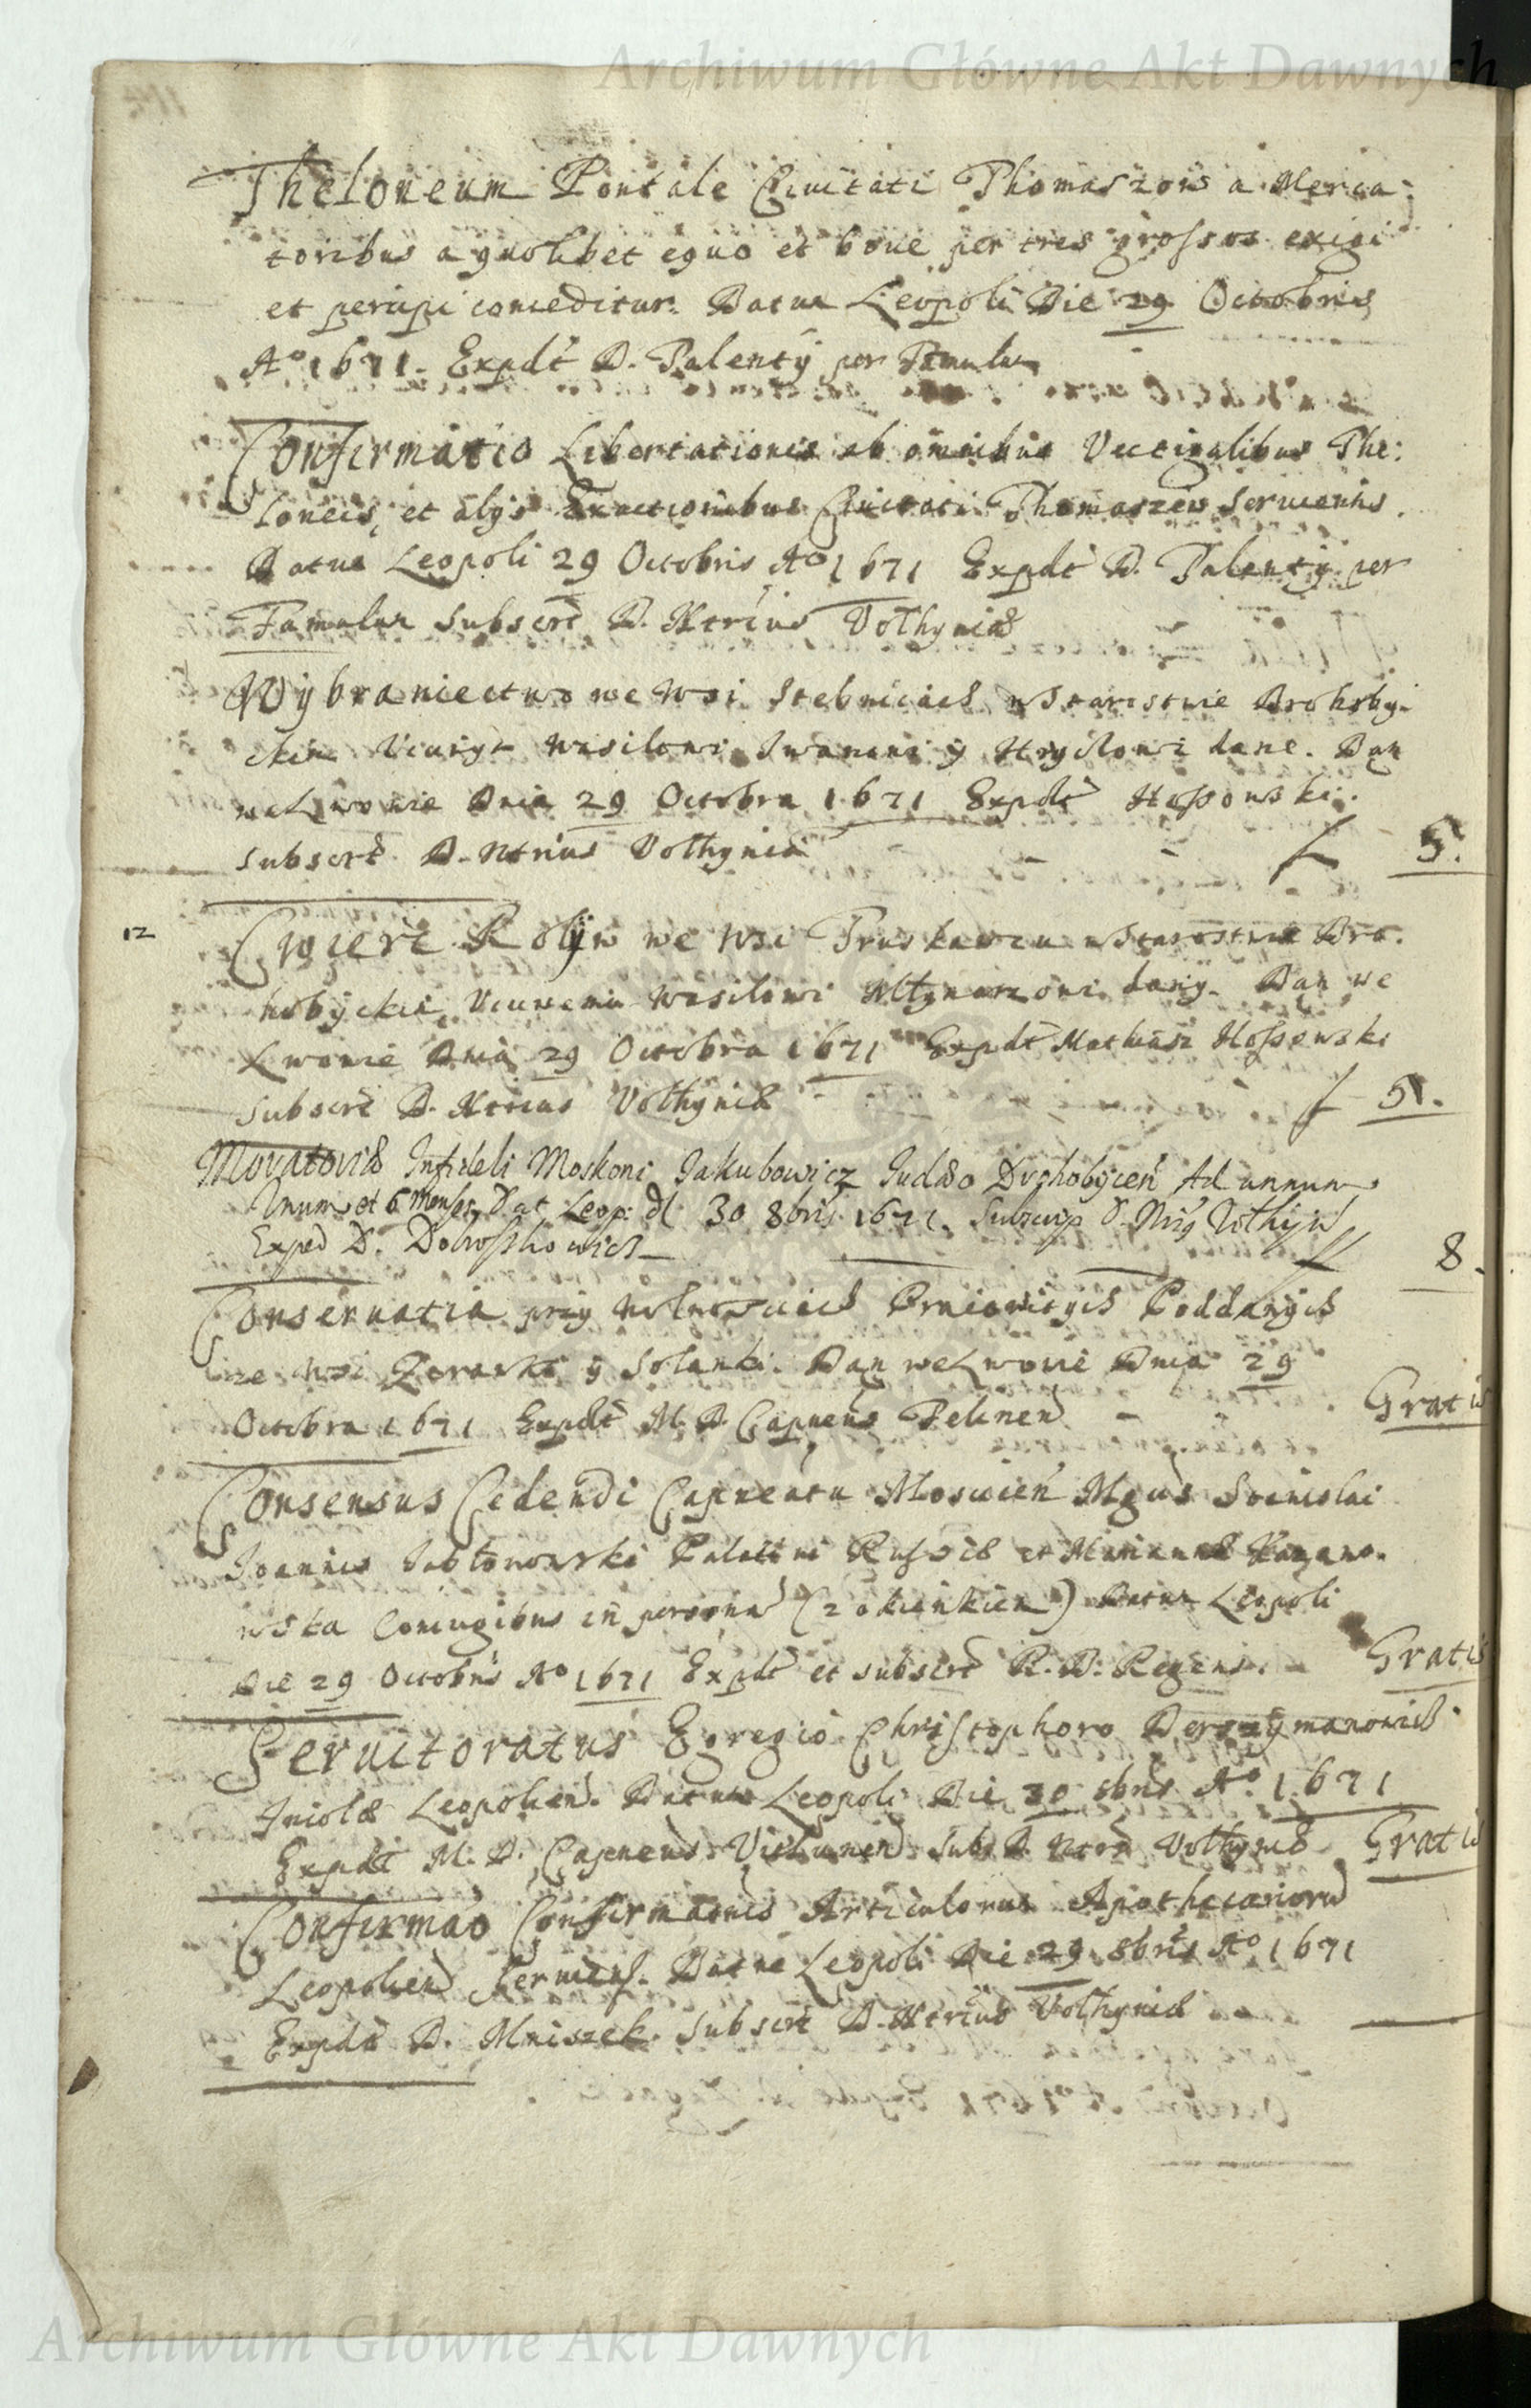 Archiwum Główne Akt Dawnych
Theloneum Pontale Civitati Thomaszow a Merca-
toribus a quolibet equo et boue per tres grossos exigi
et percipi conceditur. Datum Leopoli Die 29 Octobris
Aº 1671. Expdt D. Palenty per Famulum
Confirmatio Libertationis ab omnibus Vectigalibus The:
loneis, et alijs Exactionibus Civitati Thomaszew Serviens.
Datum Leopoli 29 Octobris Aº 1671 Expdt D. Palenty per
Famulum Subscrt D. Ntrius Volhyniæ
Wybraniectwo we Wsi Stebnicach w Starostwie Drohoby-
ckim Vcciwym Wasilowi Iwanowi y Hryckowi dane. Dan
we Lwowie Dnia 29 Octobra 1671 Expdt Hossowski.
subscrt D. Ntrius Volhyniæ - - - f 5.
12 Cwierć Rolÿ w we Wsi Truskawcu w Starostwie Dro-
hobyckim Vcciwemu Wasilowi Młynarzowi dany. Dan we
Lwowie Dnia 29 Octobra 1671 Expdt Mathiasz Hossowski
subscrt D. Ntrius Volhyniæ - f 5.
Moratoriæ Infideli Moskoni Jakubowicz Judæo Drohobÿcen Ad annum
Unum et 6 Menses Dat Leop: d 30 8bris 1671. Subscrip D. Ntrg Volhyn
Exped D. Dobrosz̈howicz f 8.
Conservatia przy Wolnosciach Poddanych
ze Wsi y Solanki. Dan we Lwowie Dnia 29
Octobra 1671 Expdt M. D. Capneus - Gratis
Consensus Cedendi Capneatu Moscicien Mgcis Stanislai
Joannis Jabłonowski Palatini Russiæ et Mariannæ Kazano-
wska Coniugibus in personam (zokienkiem) Datum Leopoli
Die 29 Octobris Aº 1671 Expdt et subscrt R. D. Regens. - Gratis
Servitoratus Egregio Christophoro Derszÿmanowicz
Incolæ Leopolien. Datum Leopoli Die 30 8bris Aº 1671
Expdt M. D. Capneus Subs D. Ntrs Volhyniæ Gratis
Confirmao Confirmaonis Articulorum Apothecariorum
Leopolien Serviens. Datum Leopoli Die 29 8bris Aº 1671
Expdt D. Mniszek. Subscrt D. Ntrius Volhyniæ
Archiwum Główne Akt Dawnych